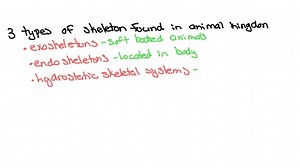 3 types of skeleton found in animal kingdon
• exoskeletons - soft bodied animals
• endoskeletons - located in body
• hydrostatic skeletal systems -